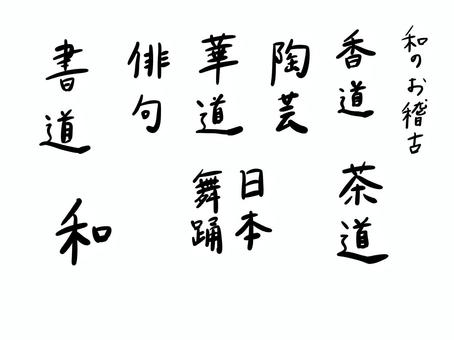 和のお稽古
香道
陶芸
華道
俳句
書道
茶道
日本
舞踊
和